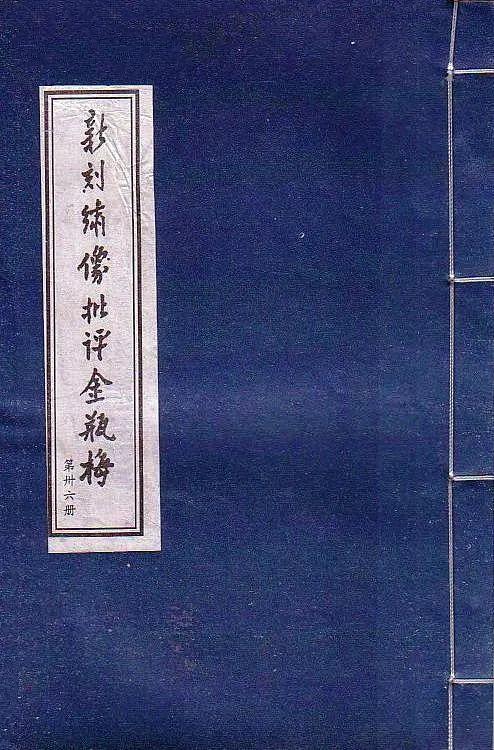 新刻绣像批评金瓶梅
第卅六册